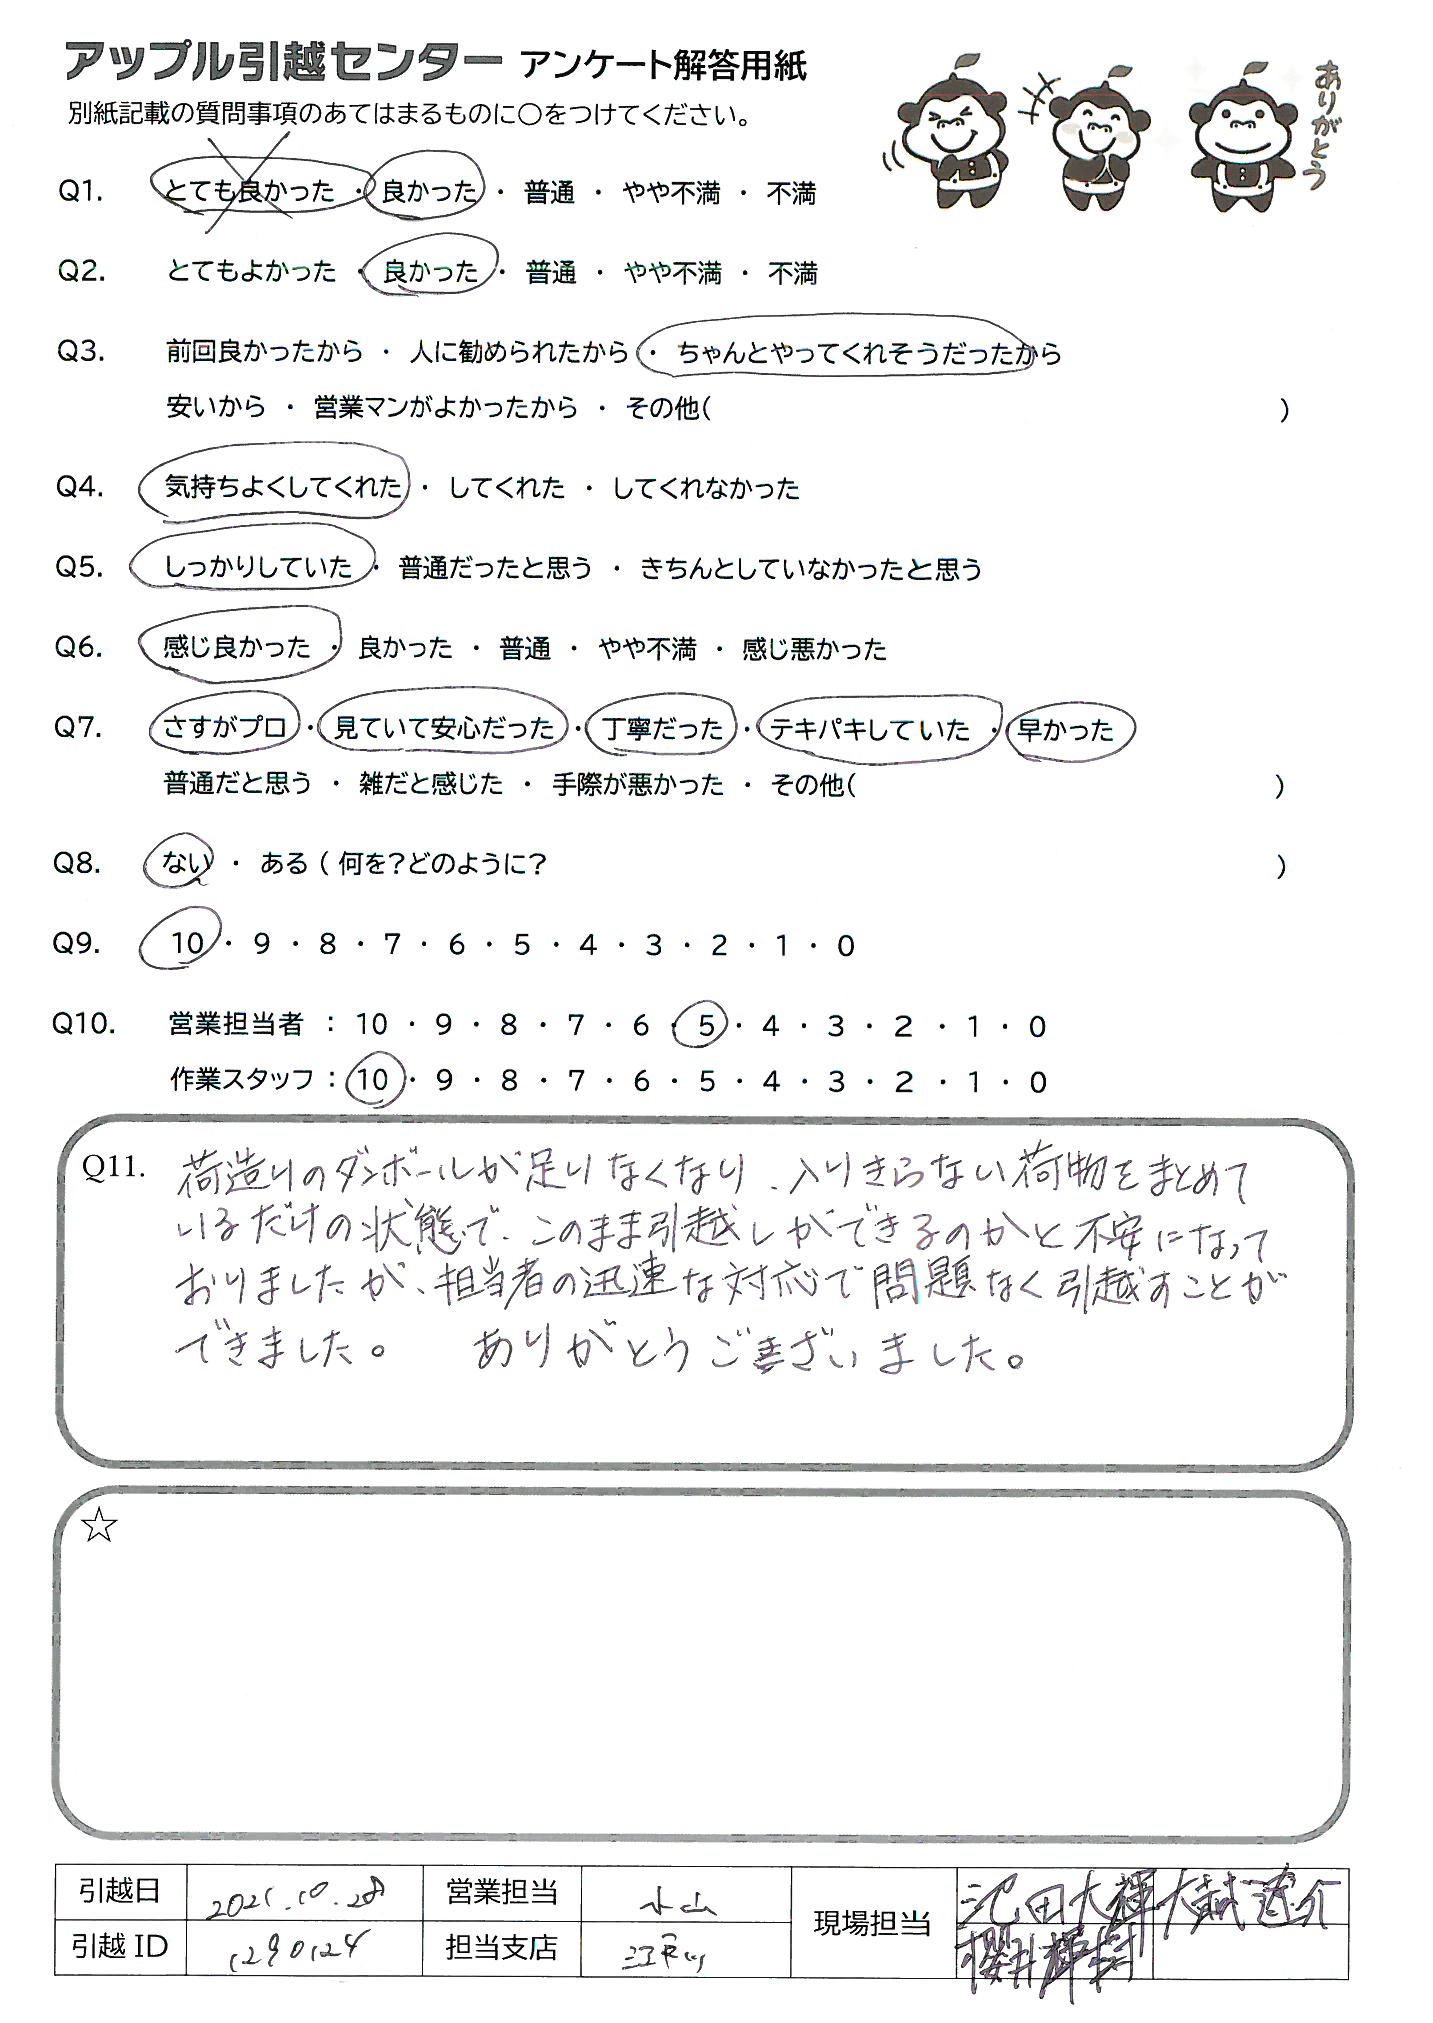 アップル引越センター アンケート解答用紙
別紙記載の質問事項のあてはまるものに○をつけてください。
ありがとう
Q1. とても良かった ・ 良かった ・ 普通 ・ やや不満 ・ 不満
Q2. とてもよかった ・ 良かった ・ 普通 ・ やや不満 ・ 不満
Q3. 前回良かったから ・ 人に勧められたから ・ ちゃんとやってくれそうだったから
安いから ・ 営業マンがよかったから ・ その他( )
Q4. 気持ちよくしてくれた ・ してくれた ・ してくれなかった
Q5. しっかりしていた ・ 普通だったと思う ・ きちんとしていなかったと思う
Q6. 感じ良かった ・ 良かった ・ 普通 ・ やや不満 ・ 感じ悪かった
Q7. さすがプロ ・ 見ていて安心だった ・ 丁寧だった ・ テキパキしていた ・ 早かった
普通だと思う ・ 雑だと感じた ・ 手際が悪かった ・ その他( )
Q8. ない ・ ある ( 何を?どのように? )
Q9. 10 ・ 9 ・ 8 ・ 7 ・ 6 ・ 5 ・ 4 ・ 3 ・ 2 ・ 1 ・ 0
Q10. 営業担当者 : 10 ・ 9 ・ 8 ・ 7 ・ 6 ・ 5 ・ 4 ・ 3 ・ 2 ・ 1 ・ 0
作業スタッフ : 10 ・ 9 ・ 8 ・ 7 ・ 6 ・ 5 ・ 4 ・ 3 ・ 2 ・ 1 ・ 0
Q11. 荷造りのダンボールが足りなくなり、入りきらない荷物をまとめて
いるだけの状態で、このまま引越しができるのかと不安になって
おりましたが、担当者の迅速な対応で問題なく引越すことが
できました。 ありがとうございました。
☆
引越日 2021.10.28 営業担当 水山 現場担当 池田大輝 大越遼介
引越 ID 1290124 担当支店 江戸川 櫻井輝樹